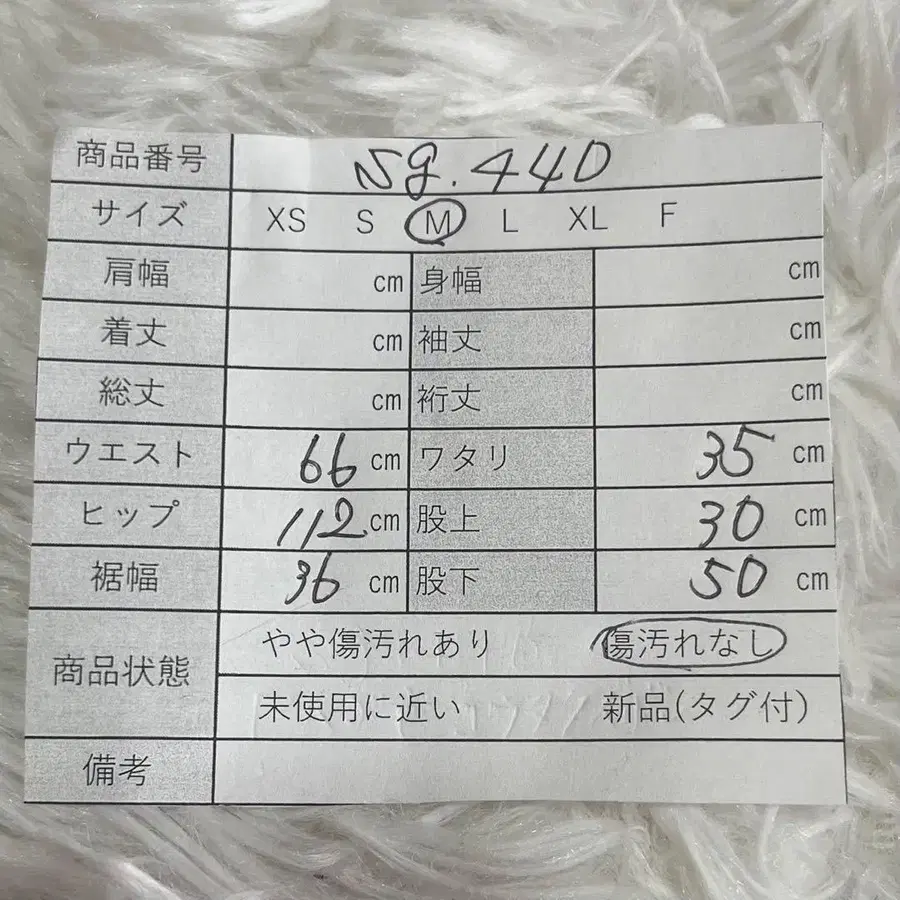 商品番号 sg.440
サイズ XS S M L XL F
肩幅 cm 身幅 cm
着丈 cm 袖丈 cm
総丈 cm 裄丈 cm
ウエスト 66 cm ワタリ 35 cm
ヒップ 112 cm 股上 30 cm
裾幅 36 cm 股下 50 cm
商品状態 やや傷汚れあり 傷汚れなし
未使用に近い 新品(タグ付)
備考